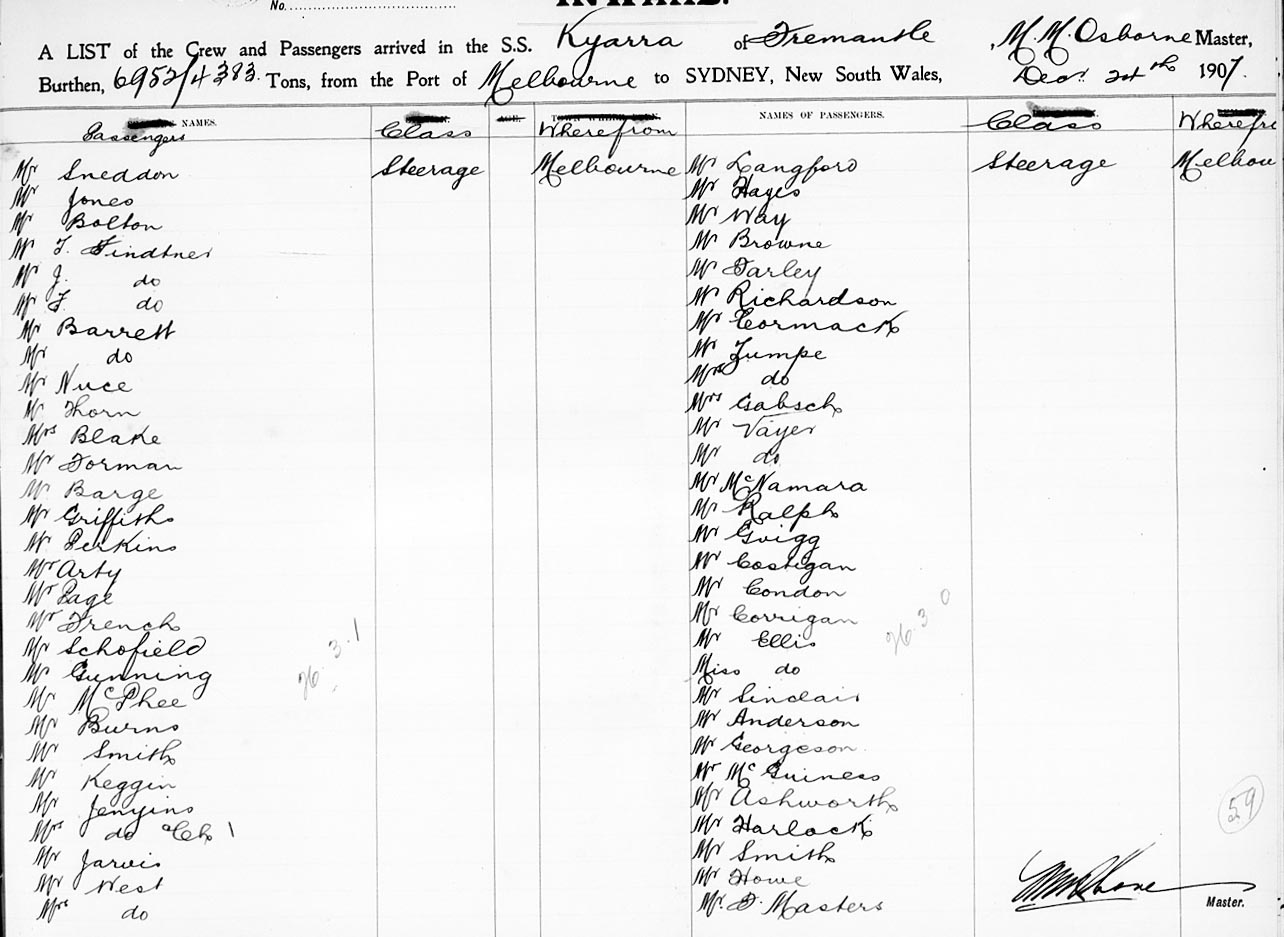 No.
INWARD.
A LIST of the Crew and Passengers arrived in the S.S. Kyarra of Fremantle, M. M. Osborne Master,
Burthen, 6952/4383 Tons, from the Port of Melbourne to SYDNEY, New South Wales, Dec. 24th 1907.
NAMES. Passengers Class AGE. Wherefrom NAMES OF PASSENGERS. Class Wherefro
Mr Sneddon Steerage Melbourne Mr Langford Steerage Melbou
Mr Jones Mr Hayes
Mr Bolton Mr Way
Mr F. Findtner Mr Browne
Mr J. do Mr Farley
Mr F. do Mr Richardson
Mr Barrett Mr Cormack
Mr do Mr Zumpe
Mr Nuce Mrs do
Mr Thorn Mrs Gabsch
Mrs Blake Mr Vayer
Mr Forman Mr do
Mr Barge Mr McNamara
Mr Griffiths Mr Ralph
Mr Perkins Mr Gvigg
Mr Arty Mr Costigan
Mr Page Mr Condon
Mr French Mr Corrigan
Mr Schofield Mr Ellis
Mr Gunning Miss do
Mr McPhee Mr Sinclair
Mr Burns Mr Anderson
Mr Smith Mr Georgeson
Mr Keggin Mr McGuiness
Mr Jenyins Mr Ashworth
Mrs do Ch 1 Mr Harlock
Mr Jarvis Mr Smith
Mr West Mr Howe
Mrs do Mr F. Masters
59
Master.